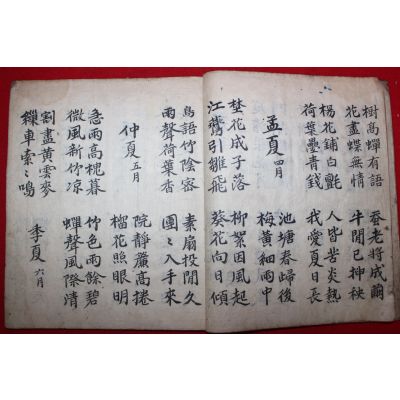 樹高蟬有語 蚕老將成繭
花盡蝶無情 牛閒已挿秧
楊花鋪白氈 人皆苦炎熱
荷葉疊青錢 我愛夏日長
孟夏 四月
池塘春歸後
梅黃細雨中
埜花成子落 柳絮因風起
江鷰引雛飛 葵花向日傾
鳥語竹陰密 素扇投閒久
雨聲荷葉香 團〻入手來
仲夏 五月
院靜簾高捲
榴花照眼明
急雨高槐暮 竹色雨餘碧
微風新竹凉 蟬聲風際清
割盡黃雲麥
繅車索〻鳴
季夏 六月